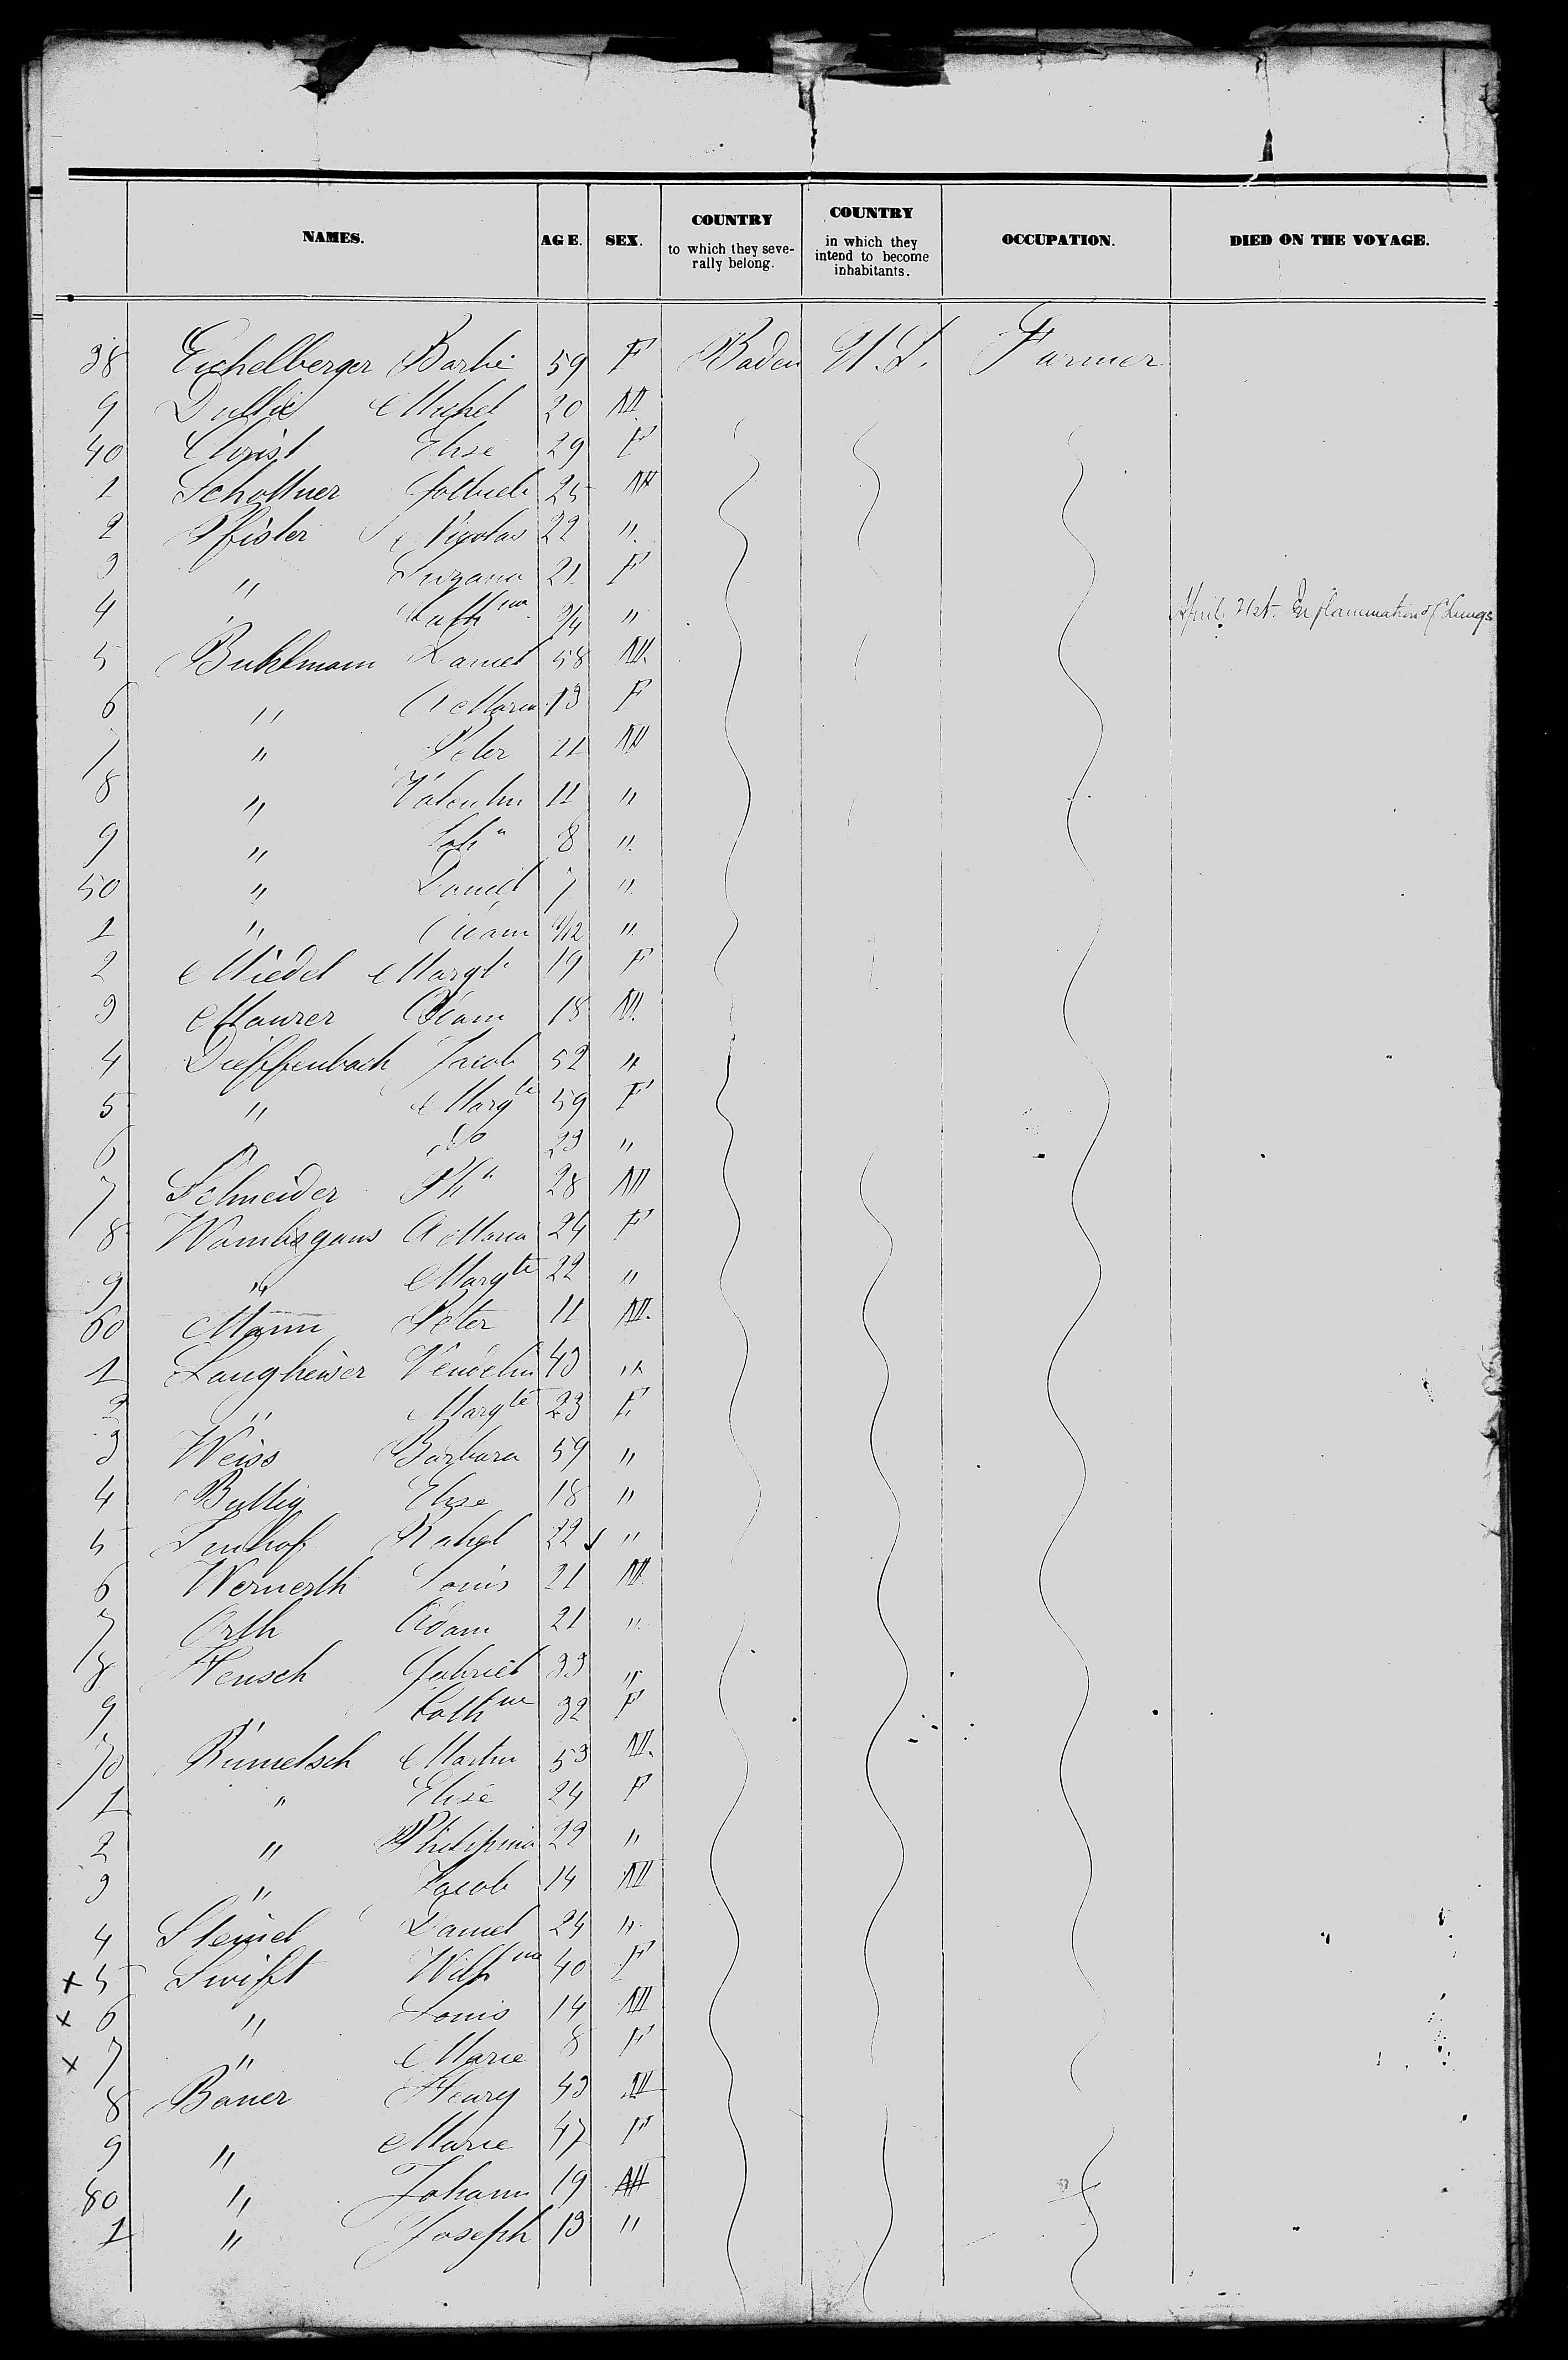 NAMES. AGE. SEX. COUNTRY to which they severally belong. COUNTRY in which they intend to become inhabitants. OCCUPATION. DIED ON THE VOYAGE.
38 Eichelberger Barbe 59 F Baden U.S. Farmer
9 Michel 20 M
40 Christ Elise 29 F
1 Schottner Gottlieb 25 M
2 Pfister Nicolas 22 "
3 " Suzana 21 F
4 " Cath na 3/4 " April 21st. Inflammation of Lungs
5 Buhlmann Daniel 58 M.
6 " A Maria 13 F
7 " Peter 11 M
8 " Valentin 11 "
9 " Joh n 8 "
50 " Daniel 7 "
1 " Adam /12 "
2 Miedel Margt 19 F
3 Maurer Adam 18 M.
4 Dieffenbach Jacob 52 "
5 " Marg te 59 F
6 " do 23 "
7 Schneider Ph 28 M
8 Wambsgans A Maria 24 F
9 " Marg te 22 "
60 Mann Peter 11 M.
1 Langheiser Vendelin 43 "
2 " Marg te 23 F
3 Weiss Barbara 59 "
4 Buttig Elise 18 "
5 Imhof Rahel 22 "
6 Wernerth Louis 21 M
7 Orth Adam 21 "
8 Hensch Gabriel 33 "
9 " Cath ne 32 F
70 Rumetsch Martin 53 M.
1 " Elise 24 F
2 " Philipina 22 "
3 " Jacob 14 M
4 Steind Daniel 24 "
x 5 Swift Wilh na 40 F
x 6 " Louis 14 M
x 7 " Marie 8 F
8 Bauer Henry 43 M
9 " Marie 47 F
80 " Johann 19 M
1 " Joseph 13 "